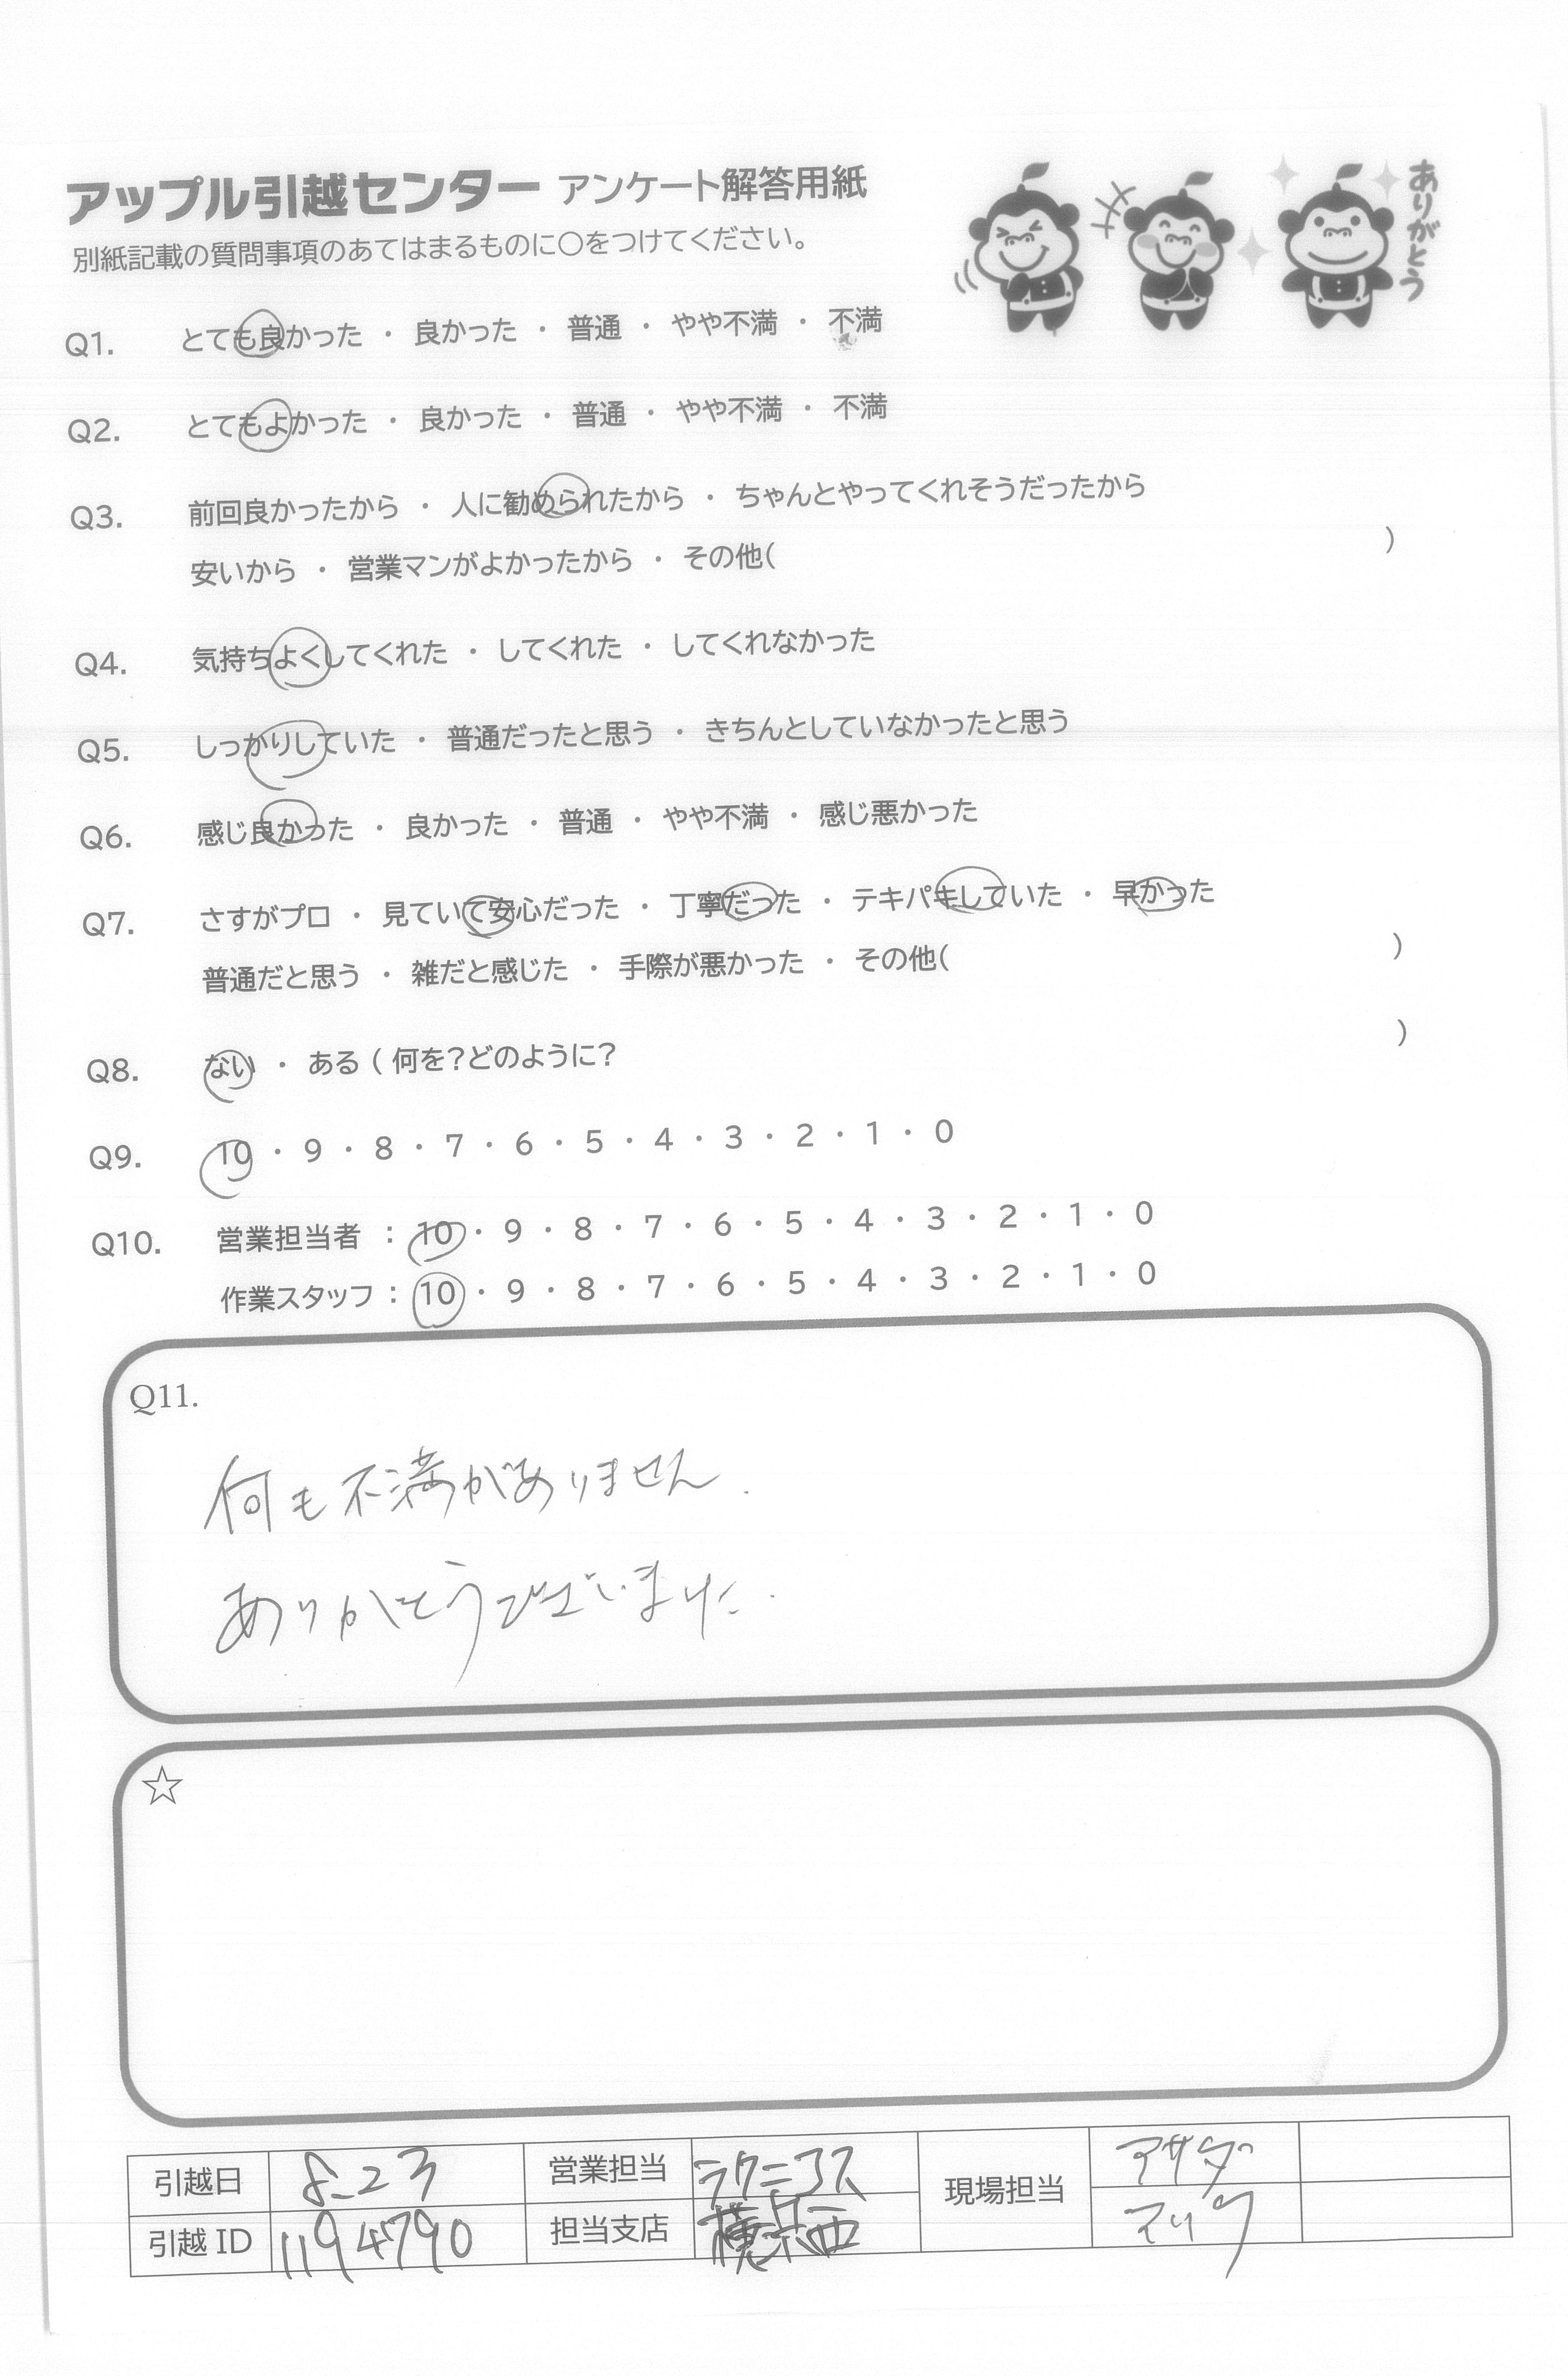 アップル引越センター アンケート解答用紙
別紙記載の質問事項のあてはまるものに○をつけてください。
ありがとう
Q1. とても良かった ・ 良かった ・ 普通 ・ やや不満 ・ 不満
Q2. とてもよかった ・ 良かった ・ 普通 ・ やや不満 ・ 不満
Q3. 前回良かったから ・ 人に勧められたから ・ ちゃんとやってくれそうだったから
安いから ・ 営業マンがよかったから ・ その他( )
Q4. 気持ちよくしてくれた ・ してくれた ・ してくれなかった
Q5. しっかりしていた ・ 普通だったと思う ・ きちんとしていなかったと思う
Q6. 感じ良かった ・ 良かった ・ 普通 ・ やや不満 ・ 感じ悪かった
Q7. さすがプロ ・ 見ていて安心だった ・ 丁寧だった ・ テキパキしていた ・ 早かった
普通だと思う ・ 雑だと感じた ・ 手際が悪かった ・ その他( )
Q8. ない ・ ある ( 何を?どのように? )
Q9. 10 ・ 9 ・ 8 ・ 7 ・ 6 ・ 5 ・ 4 ・ 3 ・ 2 ・ 1 ・ 0
Q10. 営業担当者 : 10 ・ 9 ・ 8 ・ 7 ・ 6 ・ 5 ・ 4 ・ 3 ・ 2 ・ 1 ・ 0
作業スタッフ : 10 ・ 9 ・ 8 ・ 7 ・ 6 ・ 5 ・ 4 ・ 3 ・ 2 ・ 1 ・ 0
Q11.
何も不満がありません.
ありがとうございました.
☆
引越日 8.23 営業担当 現場担当 アサダ
引越 ID 1194790 担当支店 横浜西